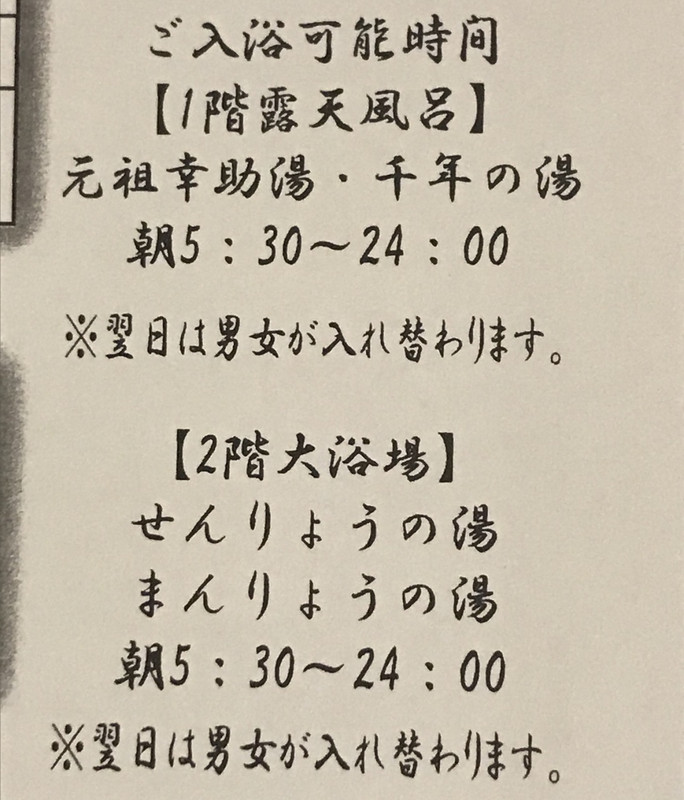 ご入浴可能時間
【1階露天風呂】
元祖幸助湯・千年の湯
朝5：30〜24：00
※翌日は男女が入れ替わります。
【2階大浴場】
せんりょうの湯
まんりょうの湯
朝5：30〜24：00
※翌日は男女が入れ替わります。